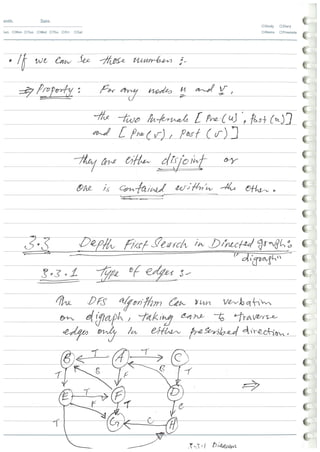 • If we can see those numbers :-
⇒ Property: For any nodes u and v,
the two Intervals [Pre(u), Post(u)]
and [Pre(v), Post(v)]
they are either disjoint or
one is contained within the other.
3.3 Depth First Search in Directed graph:
"digraph"
3.3.1 Type of edges :-
The DFS algorithm can run verbatim
on digraph, taking care to traverse
edges only in either prescribed direction.
B T A T C
T B F B T
E T F D
F T C
G C H
T
3.3.1 Diagram